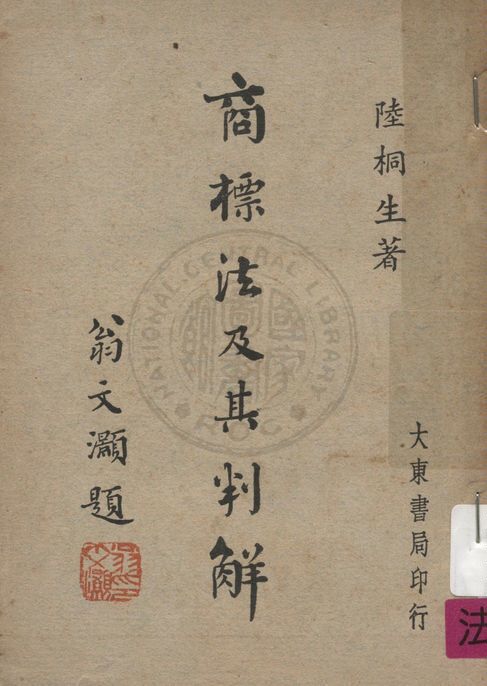 陸桐生著
商標法及其判解
翁文灝題
大東書局印行
法
NATIONAL CENTRAL LIBRARY
R.O.C.